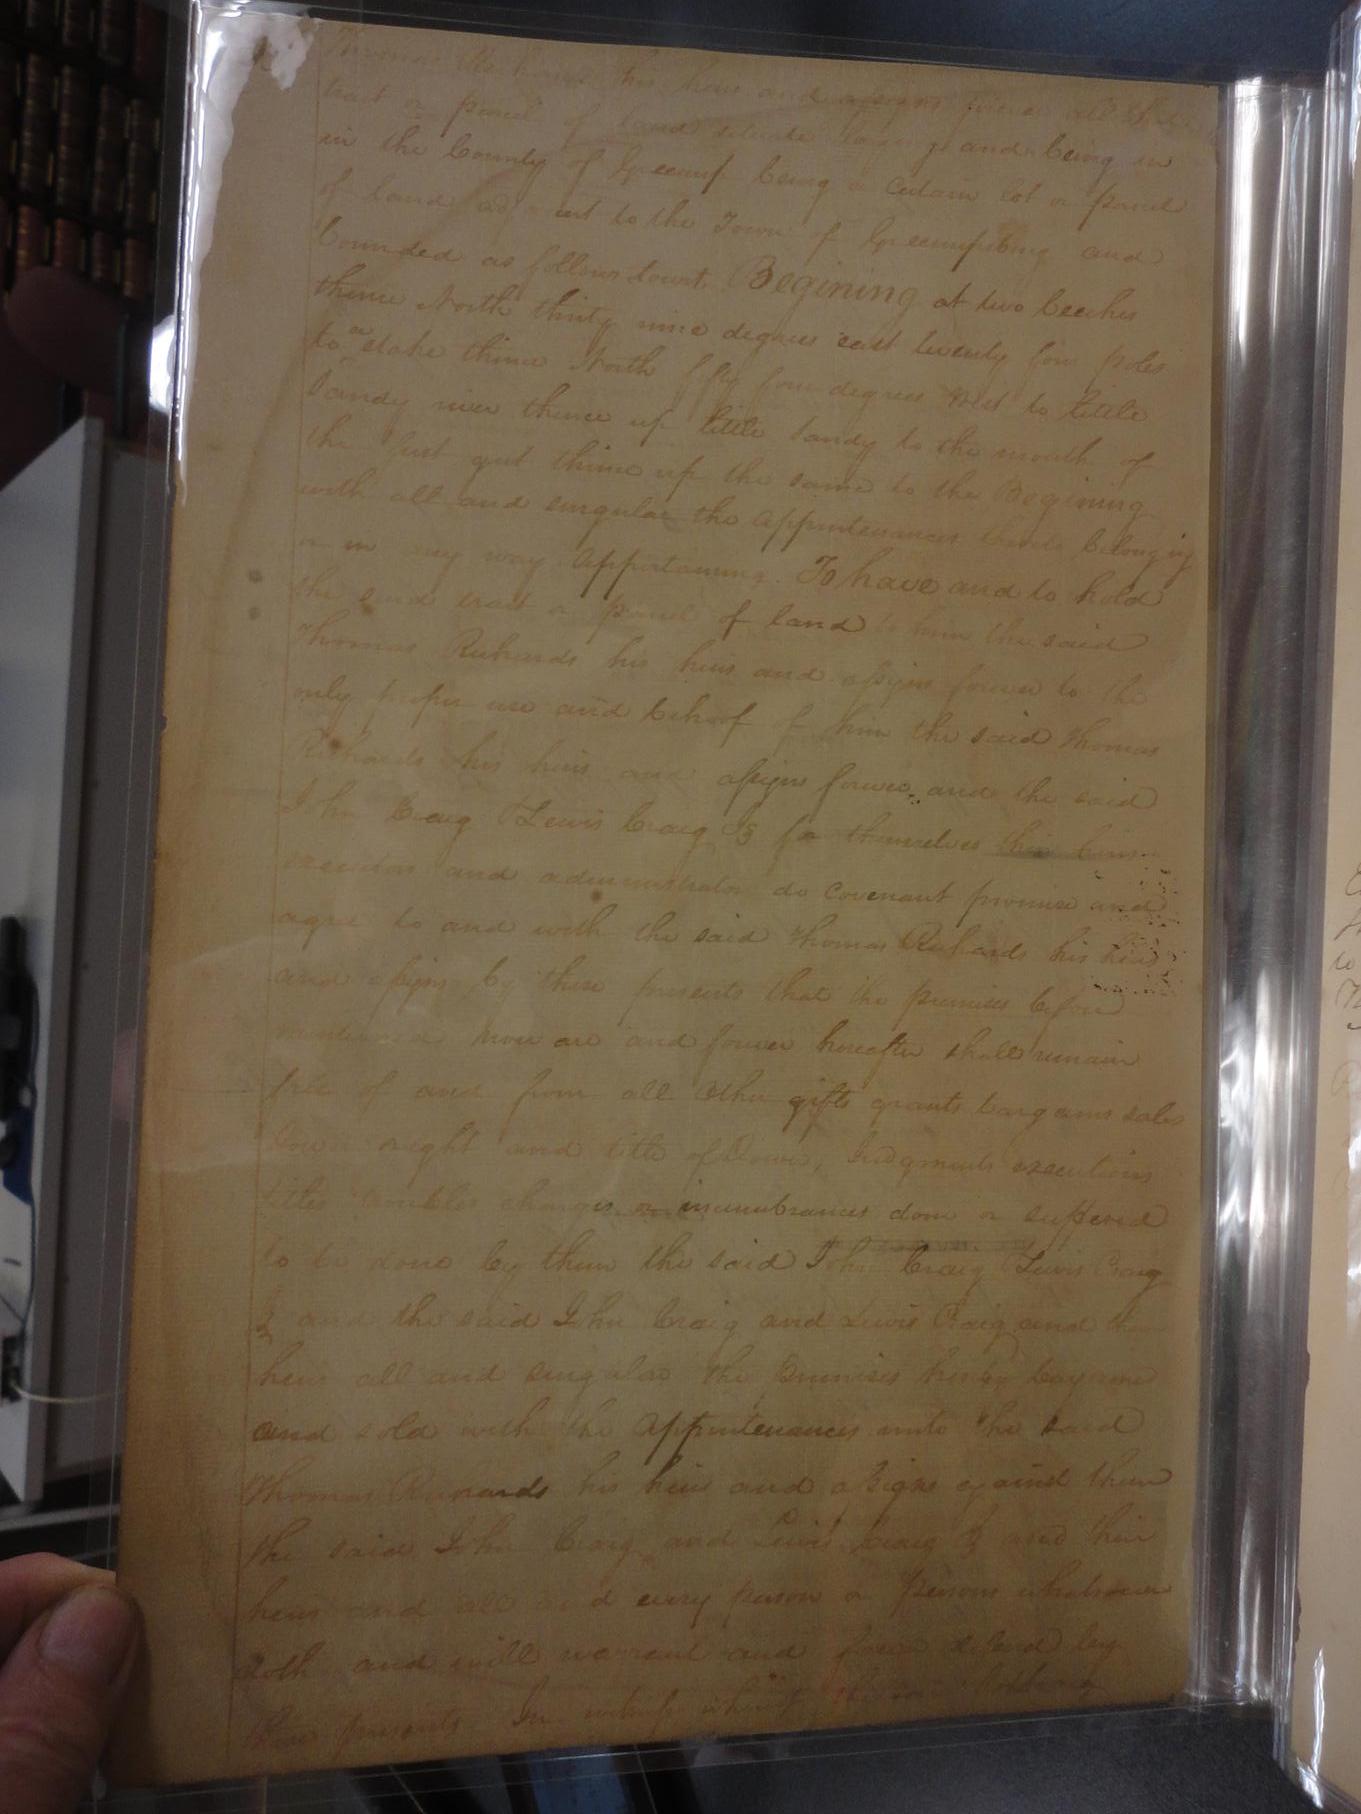 Thomas Richards his heirs and assigns forever all that
tract or parcel of land situate laying and being in
in the County of Greenup being a certain lot or parcel
of land adjacent to the Town of Greenupsburg and
bounded as follows towit, Begining at two beeches
thence North thirty nine degrees east twenty four poles
to a stake thence North fifty four degrees West to little
Sandy river thence up little Sandy to the mouth of
the first gut thence up the same to the Begining
with all and singular the appurtenances thereto belonging
or in any way appertaining. To have and to hold
the said tract or parcel of land to him the said
Thomas Richards his heirs and assigns forever to the
only proper use and behoof of him the said Thomas
Richards his heirs and assigns forever, and the said
John Craig & Lewis Craig for themselves their heirs
executors and administrators do covenant promise and
agree to and with the said Thomas Richards his heirs
and assigns by these presents that the premises before
mentioned now are and forever hereafter shall remain
free of and from all other gifts grants bargains sales
Dower right and title of Dower, Judgments executions
titles troubles charges or incumbrances done or suffered
to be done by them the said John Craig Lewis Craig
& and the said John Craig and Lewis Craig and their
heirs all and singular the premises hereby bargained
and sold with the appurtenances unto the said
Thomas Richards his heirs and assigns against them
the said John Craig and Lewis Craig & and their
heirs and all and every person or persons whatsoever
doth and will warrant and forever defend by
these presents. In witness whereof